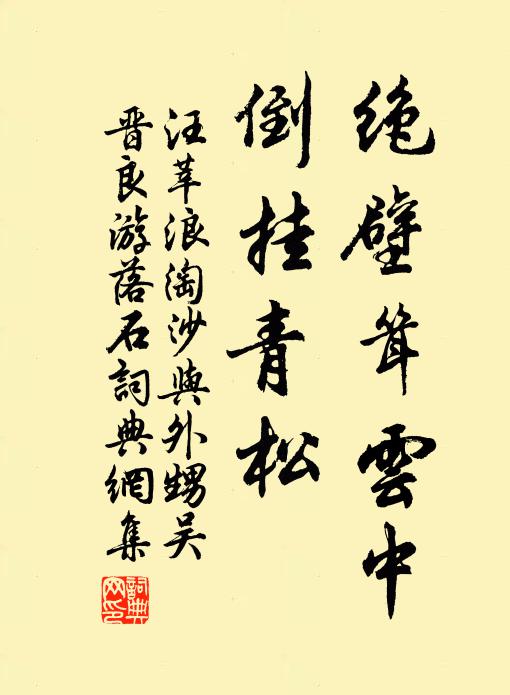 绝壁耸雲中
倒挂青松
汪莘浪淘沙與外甥吴
晋良游落石詞典網集
詞典网印